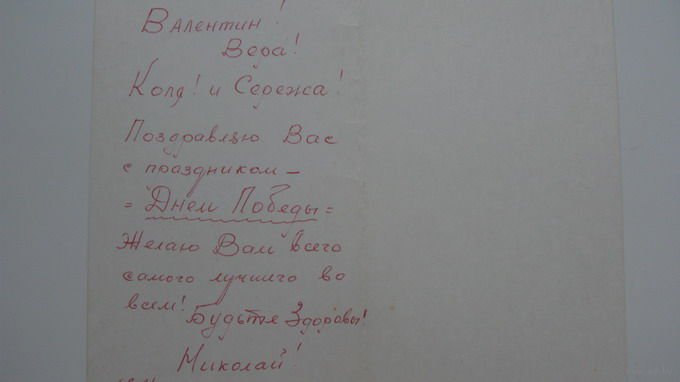 Валентин!
Вера!
Коля! и Сережа!
Поздравляю Вас
с праздником –
= Днем Победы =
Желаю Вам всего
самого лучшего во
всем!
Будьте Здоровы!
Николай!